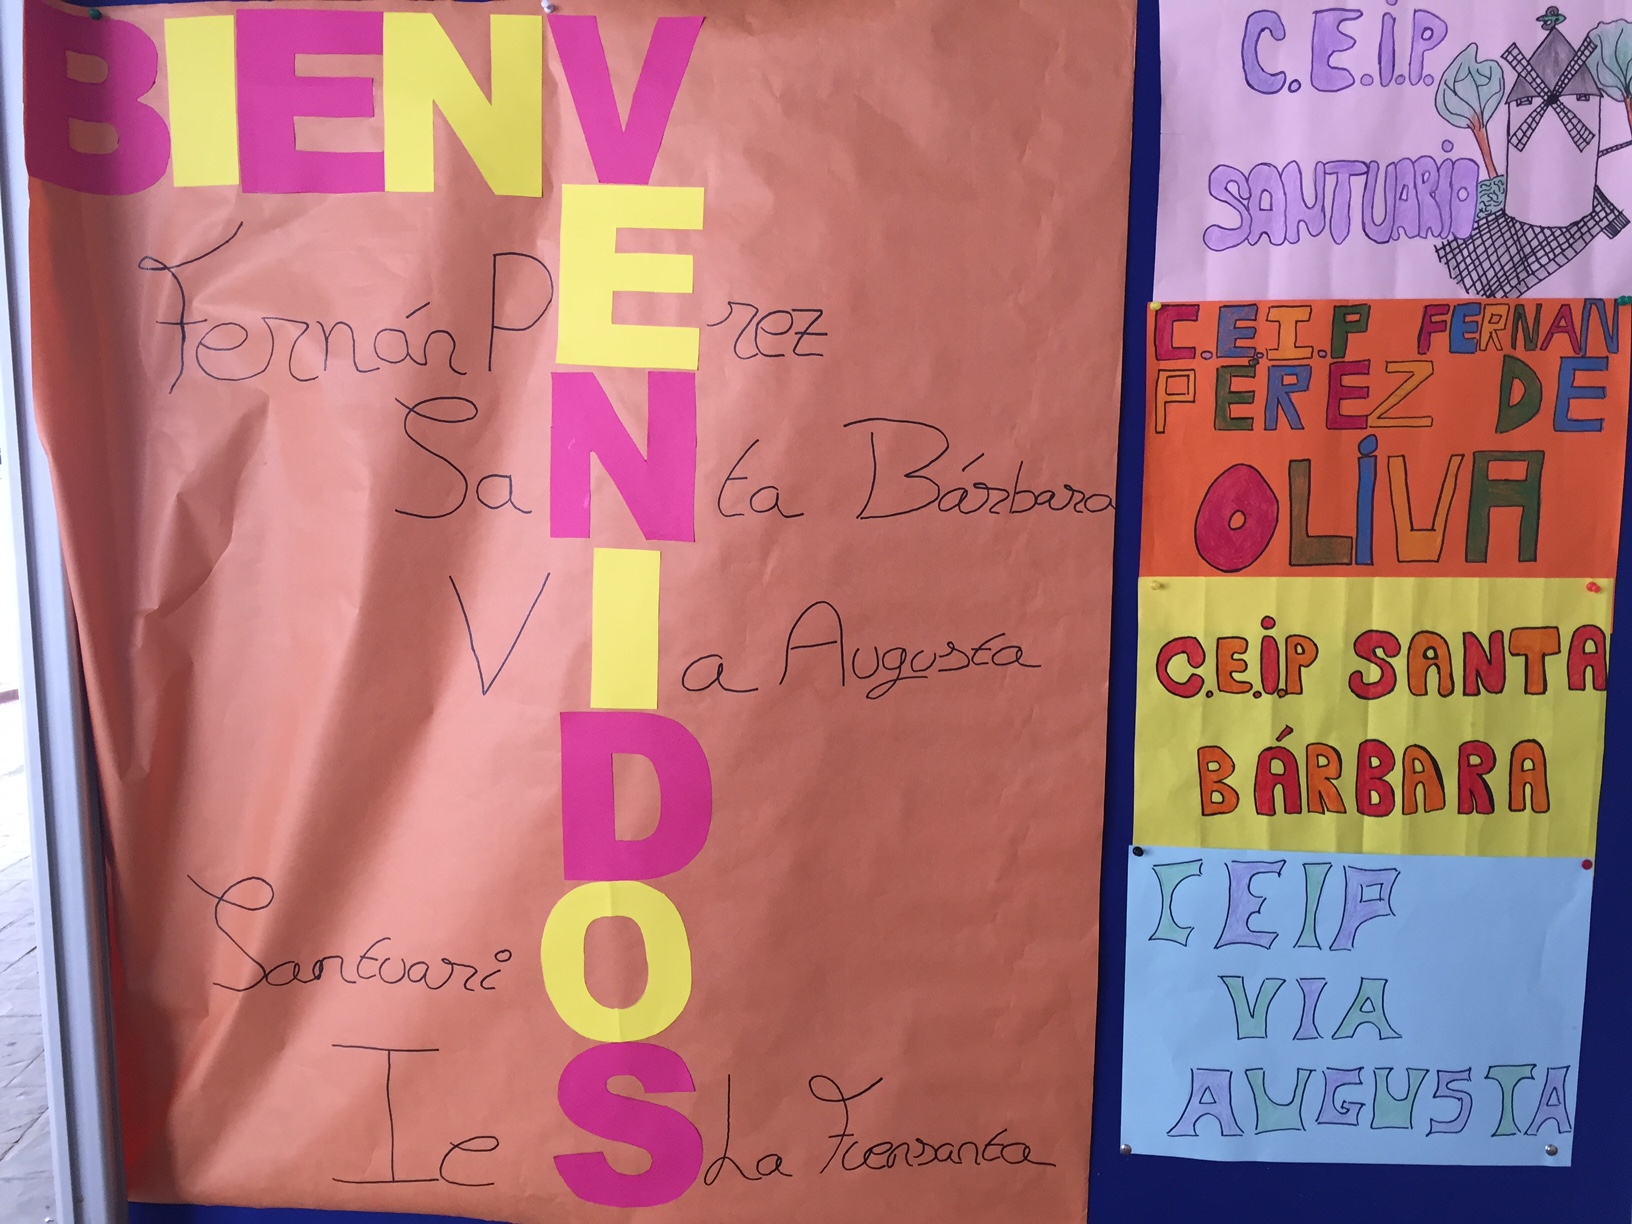 BIENVENIDOS
Fernán PErez
SaNta Bárbara
VIa Augusta
SantuariO
IeS La Fuensanta
C.E.I.P.
SANTUARIO
C.E.I.P FERNAN
PÉREZ DE
OLIVA
C.E.I.P SANTA
BÁRBARA
CEIP
VIA
AUGUSTA